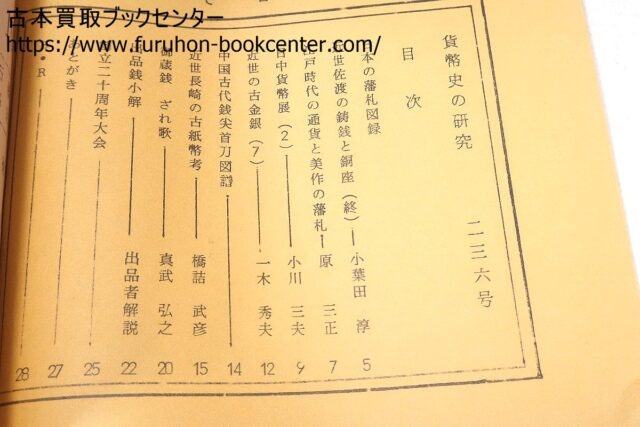 古本買取ブックセンター
https://www.furuhon-bookcenter.com/
貨幣史の研究 二三六号
目次
本の藩札図録
世佐渡の鋳銭と銅座(終)――小葉田 淳 5
戸時代の通貨と美作の藩札―原 三正 7
日中貨幣展(2)――小川 三夫 9
近世の古金銀(7)――一木 秀夫 12
中国古代銭尖首刀図譜―― 14
近世長崎の古紙幣考――橋詰 武彦 15
御蔵銭 ざれ歌――真武 弘之 20
出品銭小解――出品者解説 22
立二十周年大会―― 25
あとがき―― 27
・R―― 28